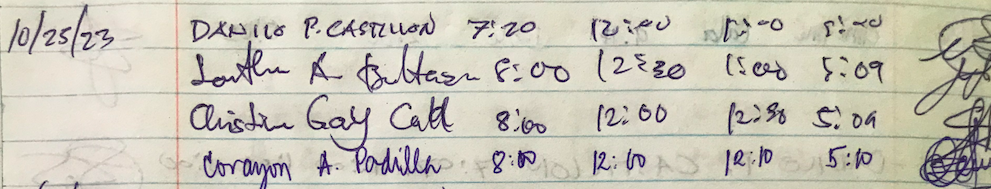 10/25/23 DANILO P. CASTILLON 7:20 12:00 1:00 5:00
A. 8:00 12:30 1:00 5:09
Christine Gay Catt 8:00 12:00 12:30 5:09
Corazon A. Padilla 8:00 12:10 12:10 5:10